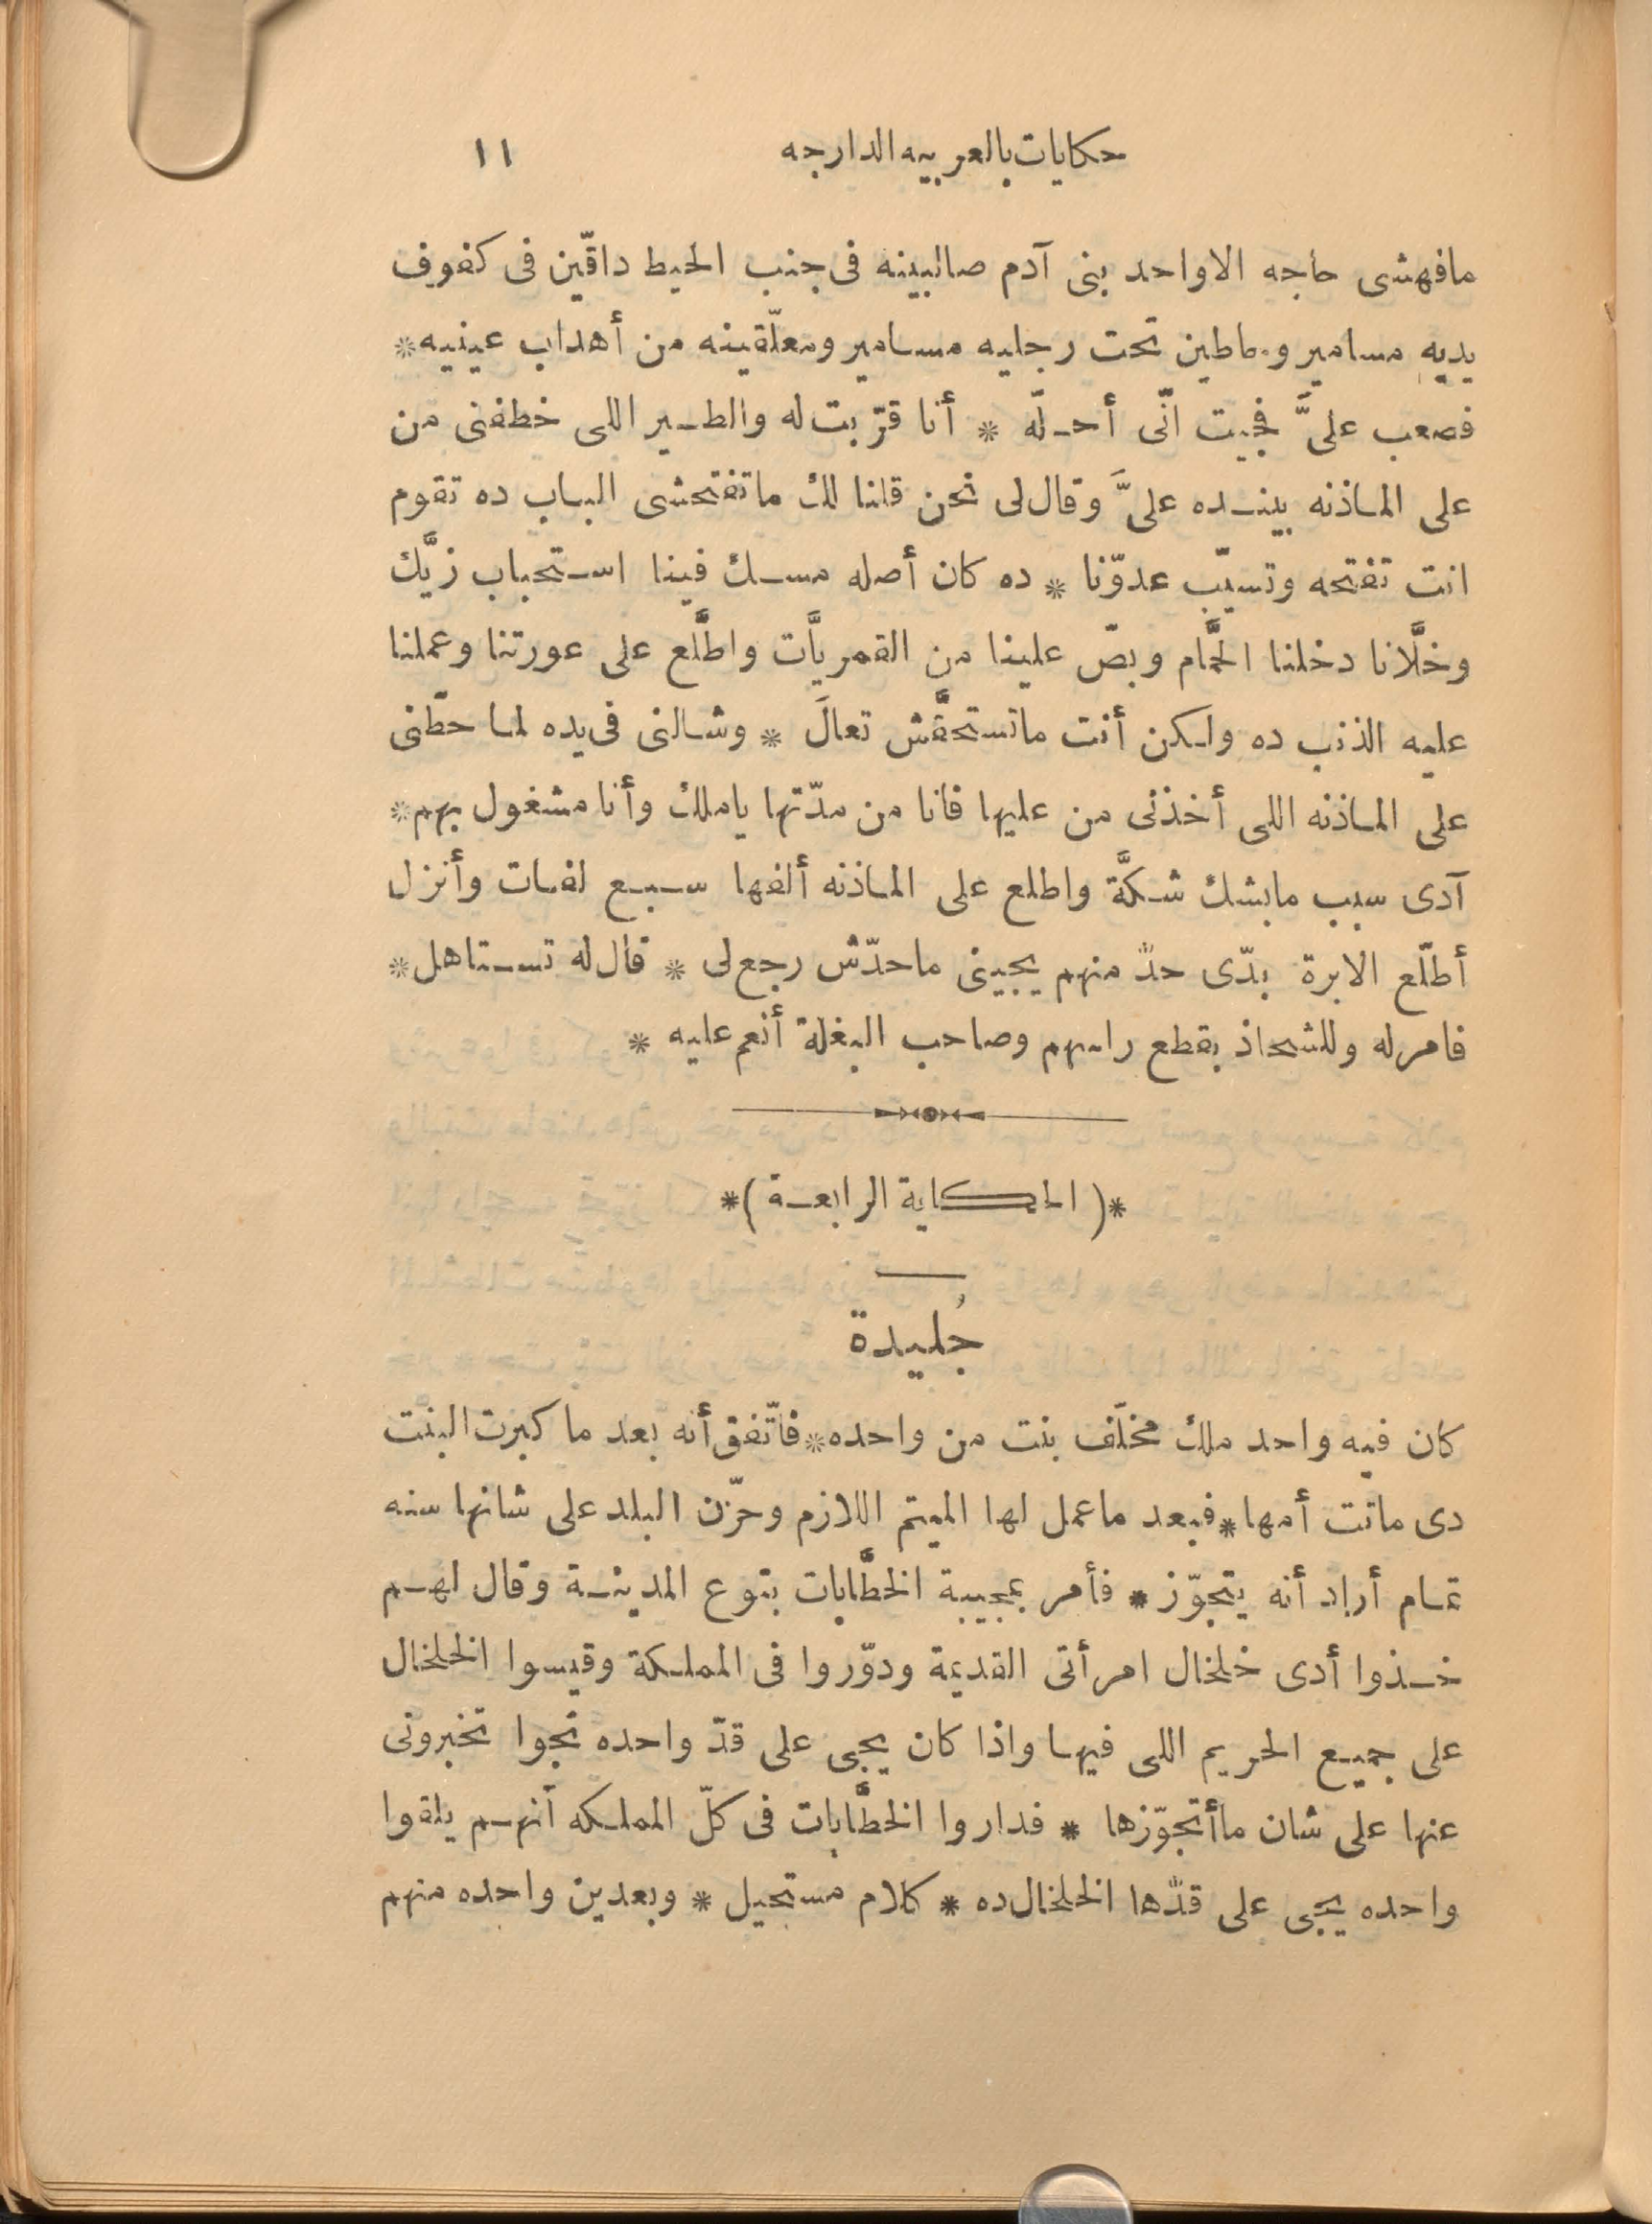 حكايات بالعربيه الدارجه ١١
مافهشى حاجه الا واحد بنى آدم صالبينه فى جنب الحيط داقّين فى كفوف
يديه مسامير وحاطين تحت رجليه مسامير ومعلّقينه من أهداب عينيه *
فصعب علىَّ فجيت انّى أحلّه * أنا قرّبت له والطير اللى خطفنى من
على الماذنه بينده علىَّ وقال لى نحن قلنا لك ماتفتحشى الباب ده تقوم
انت تفتحه وتسيّب عدوّنا * ده كان أصله مسك فينا استحباب زيَّك
وخلَّانا دخلنا الحمَّام وبصّ علينا من القمريَّات واطلَّع على عورتنا وعملنا
عليه الذنب ده ولكن أنت ماتستحقَّش تعالَ * وشالنى فى يده لما حطّنى
على الماذنه اللى أخذنى من عليها فانا من مدّتها ياملك وأنا مشغول بهم *
آدى سبب مابشك شكَّة واطلع على الماذنه ألفها سبع لفات وأنزل
أطلّع الابرة بدّى حدّ منهم يجيبنى ماحدّش رجع لى * قال له تستاهل *
فامر له وللشحاذ بقطع راسهم وصاحب البغلة أنعم عليه *
*( الحكاية الرابعة )*
جُليدة
كان فيه واحد ملك مخلّف بنت من واحده * فاتّفق أنه بعد ما كبرت البنت
دى ماتت أمها * فبعد ماعمل لها الميتم اللازم وحزّن البلد على شانها سنه
تمام أراد أنه يتجوّز * فأمر بمجيبة الخطَّابات بتوع المدينة وقال لهم
خذوا أدى خلخال امرأتى القديمة ودوّروا فى المملكة وقيسوا الخلخال
على جميع الحريم اللى فيها واذا كان يجى على قدّ واحده تجوا تخبرونى
عنها على شان ماأتجوّزها * فداروا الخطَّابات فى كلّ المملكه أنهم يلقوا
واحده يجى على قدّها الخلخال ده * كلام مستحيل * وبعدين واحده منهم